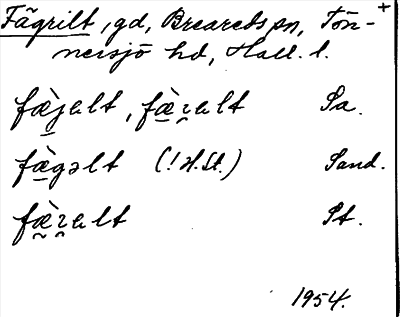 Fägrilt, gd, Breareds sn, Tön- +
nersjö hd, Hall. l.
fæ̀jalt, fæ̀ɀalt Sa.
fæ̀gəlt (! H. St.) Sand.
fæ̀ɀalt St.
1954.